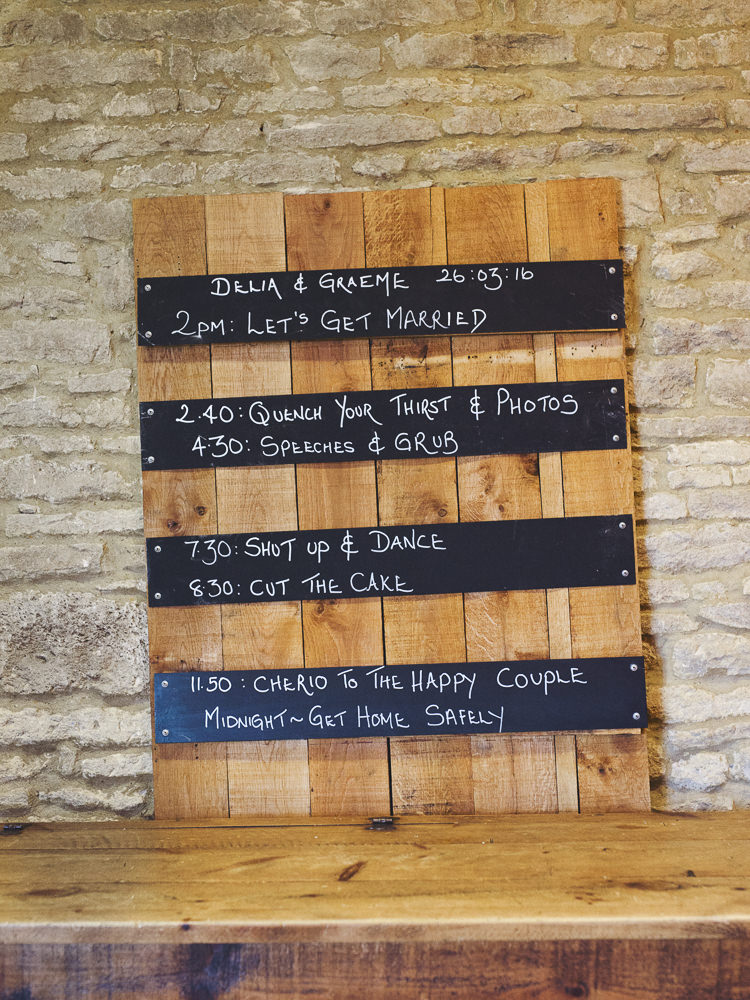 DELIA & GRAEME 26:03:16
2PM: LET'S GET MARRIED
2.40: QUENCH YOUR THIRST & PHOTOS
4.30: SPEECHES & GRUB
7.30: SHUT UP & DANCE
8.30: CUT THE CAKE
11.50: CHERIO TO THE HAPPY COUPLE
MIDNIGHT~GET HOME SAFELY